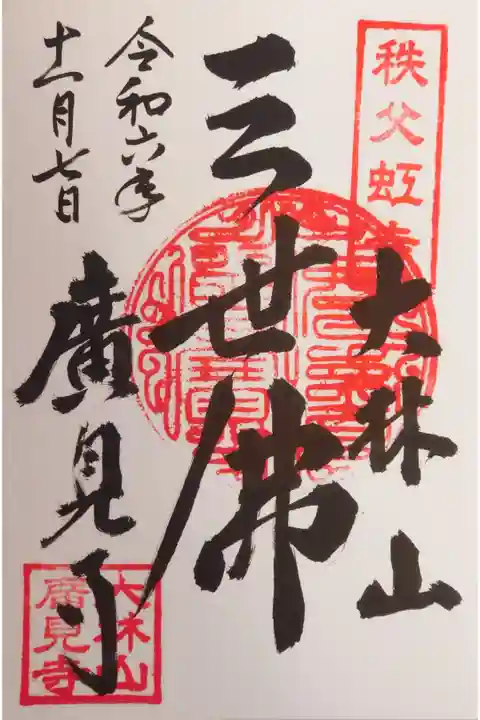 秩父虹
大林山
三世佛
令和六年
十一月七日
廣見寺
大林山
廣見寺